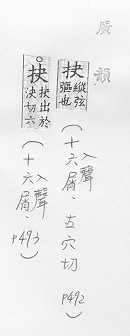 廣韻
抉 縱弦
彄也
(入聲十六屑.古穴切 p492)
抉 抉出於
決切六
(入聲十六屑.p493)